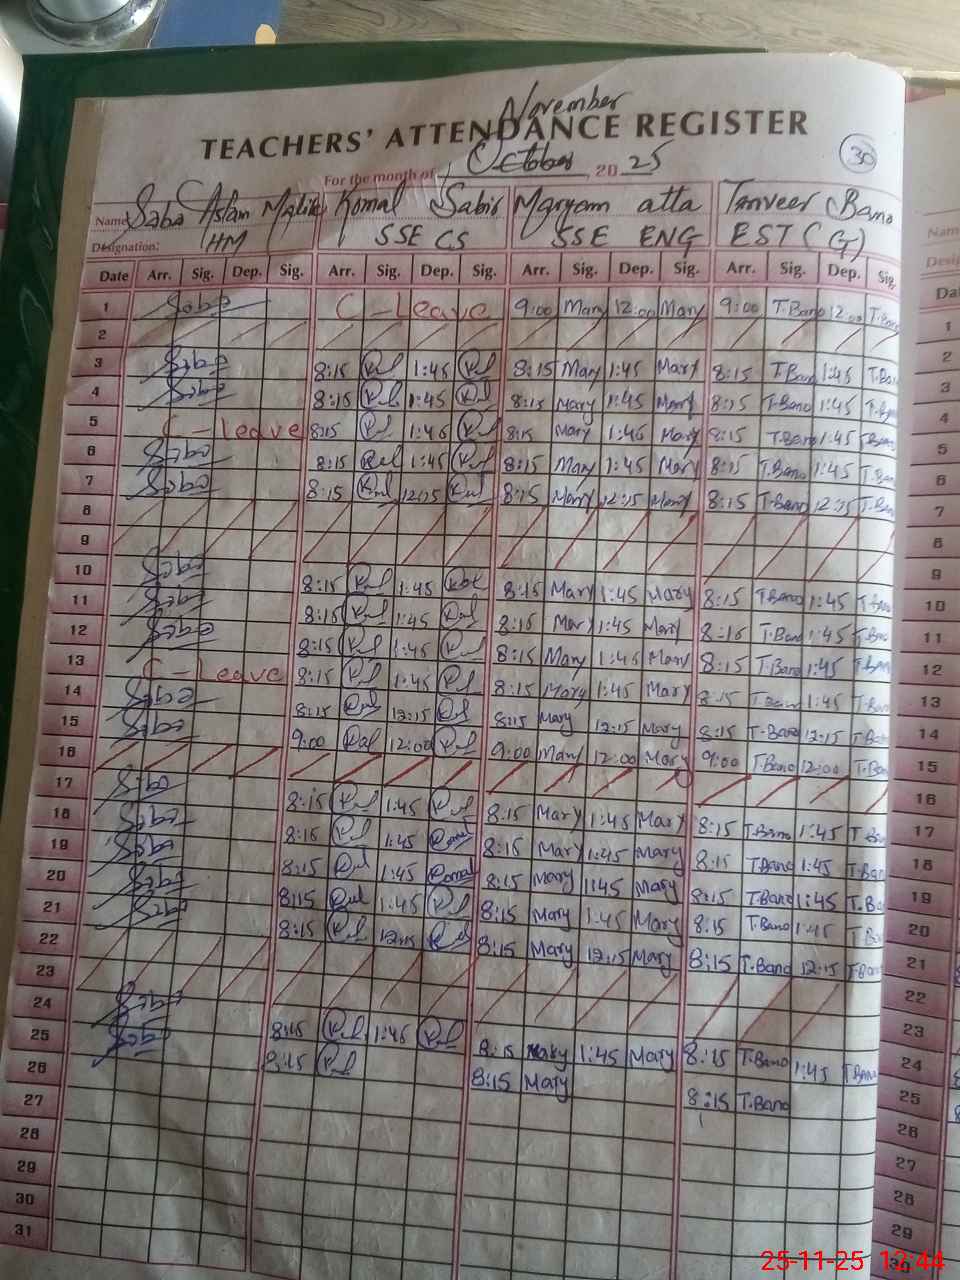 November
TEACHERS' ATTENDANCE REGISTER
30
For the month of October, 2025
Name Saba Aslam Malik Komal Sabir Maryam atta Tanveer Bano Nam
Designation: HM SSE CS SSE ENG EST (G) Desig
Date Arr. Sig. Dep. Sig. Arr. Sig. Dep. Sig. Arr. Sig. Dep. Sig. Arr. Sig. Dep. Sig. Da
1 Saba C-Leave 9:00 Mary 12:00 Mary 9:00 T.Bano 12:00 T.Bano 1
2 2
3 Saba 8:15 1:45 8:15 Mary 1:45 Mary 8:15 T.Bano 1:45 T.Bano 3
4 Saba 8:15 1:45 8:15 Mary 1:45 Mary 8:15 T.Bano 1:45 T.Bano 4
5 C-Leave 8:15 1:45 8:15 Mary 1:45 Mary 8:15 T.Bano 1:45 T.Bano 5
6 Saba 8:15 1:45 8:15 Mary 1:45 Mary 8:15 T.Bano 1:45 T.Bano 6
7 Saba 8:15 12:15 8:15 Mary 12:15 Mary 8:15 T.Bano 12:15 T.Ban 7
8 8
9 9
10 Saba 8:15 1:45 8:15 Mary 1:45 Mary 8:15 T.Bano 1:45 T.Bano 10
11 Saba 8:15 1:45 8:15 Mary 1:45 Mary 8:15 T.Bano 1:45 T.Bano 11
12 Saba 8:15 1:45 8:15 Mary 1:45 Mary 8:15 T.Bano 1:45 T.Bano 12
13 C-Leave 8:15 1:45 8:15 Mary 1:45 Mary 8:15 T.Bano 1:45 T.Bano 13
14 Saba 8:15 12:15 8:15 Mary 12:15 Mary 8:15 T.Bano 12:15 T.Bano 14
15 Saba 9:00 12:00 9:00 Mary 12:00 Mary 9:00 T.Bano 12:00 T.Bano 15
16 16
17 Saba 8:15 1:45 8:15 Mary 1:45 Mary 8:15 T.Bano 1:45 T.Bano 17
18 Saba 8:15 1:45 Komal 8:15 Mary 1:45 Mary 8:15 T.Bano 1:45 T.Bano 18
19 Saba 8:15 1:45 Komal 8:15 Mary 1:45 Mary 8:15 T.Bano 1:45 T.Ba 19
20 Saba 8:15 1:45 8:15 Mary 1:45 Mary 8:15 T.Bano 1:45 T.B 20
21 Saba 8:15 12:15 8:15 Mary 12:15 Mary 8:15 T.Bano 12:15 T.Bano 21
22 22
23 23
24 Saba 8:15 1:45 8:15 Mary 1:45 Mary 8:15 T.Bano 1:45 T.Bano 24
25 Saba 8:15 8:15 Mary 8:15 T.Bano 25
26 26
27 27
28 28
29 29
30
31
25-11-25 12:44